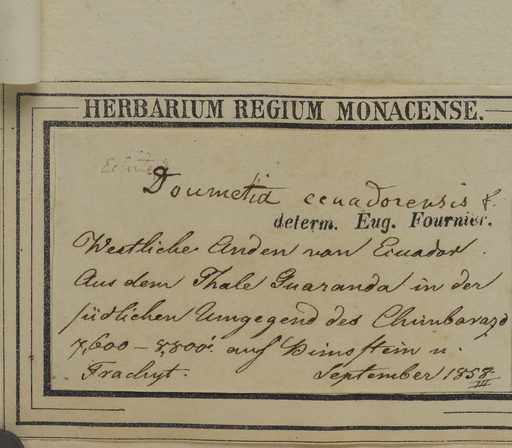 HERBARIUM REGIUM MONACENSE.
Echites
Doumetia ecuadorensis f.
determ. Eug. Fournier.
Westliche Anden von Ecuador.
Aus dem Thale Guaranda in der
südlichen Umgegend des Chimborazo
7,600 – 8,800' auf Bimsstein u.
Trachyt. September 1858.
III